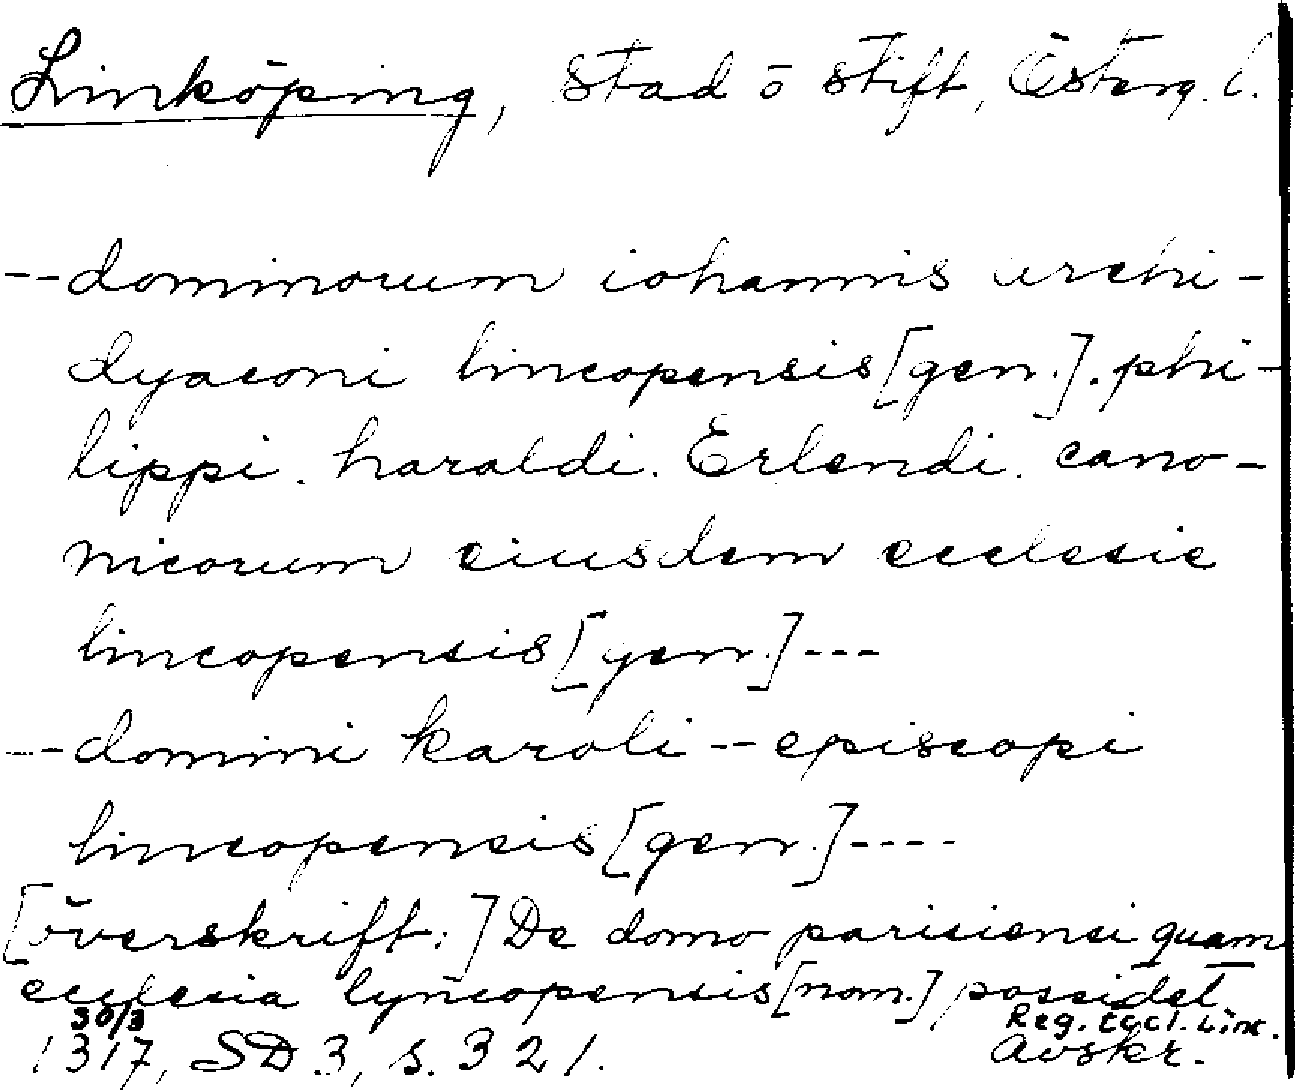 Linköping, stad o stift, Österg. l.
-- dominorum iohannis archi-
dyaconi lincopensis [gen.]. phi-
lippi. haraldi. Erlendi. cano-
nicorum eiusdem ecclesie
lincopensis [gen.] ---
--- domini karoli -- episcopi
lincopensis [gen.] ----
[överskrift:] De domo parisiensi quam
ecclesia lyncopensis [nom.] possidet
30/3 Reg. Eccl. Linc.
1317, SD 3, s. 321. Avskr.